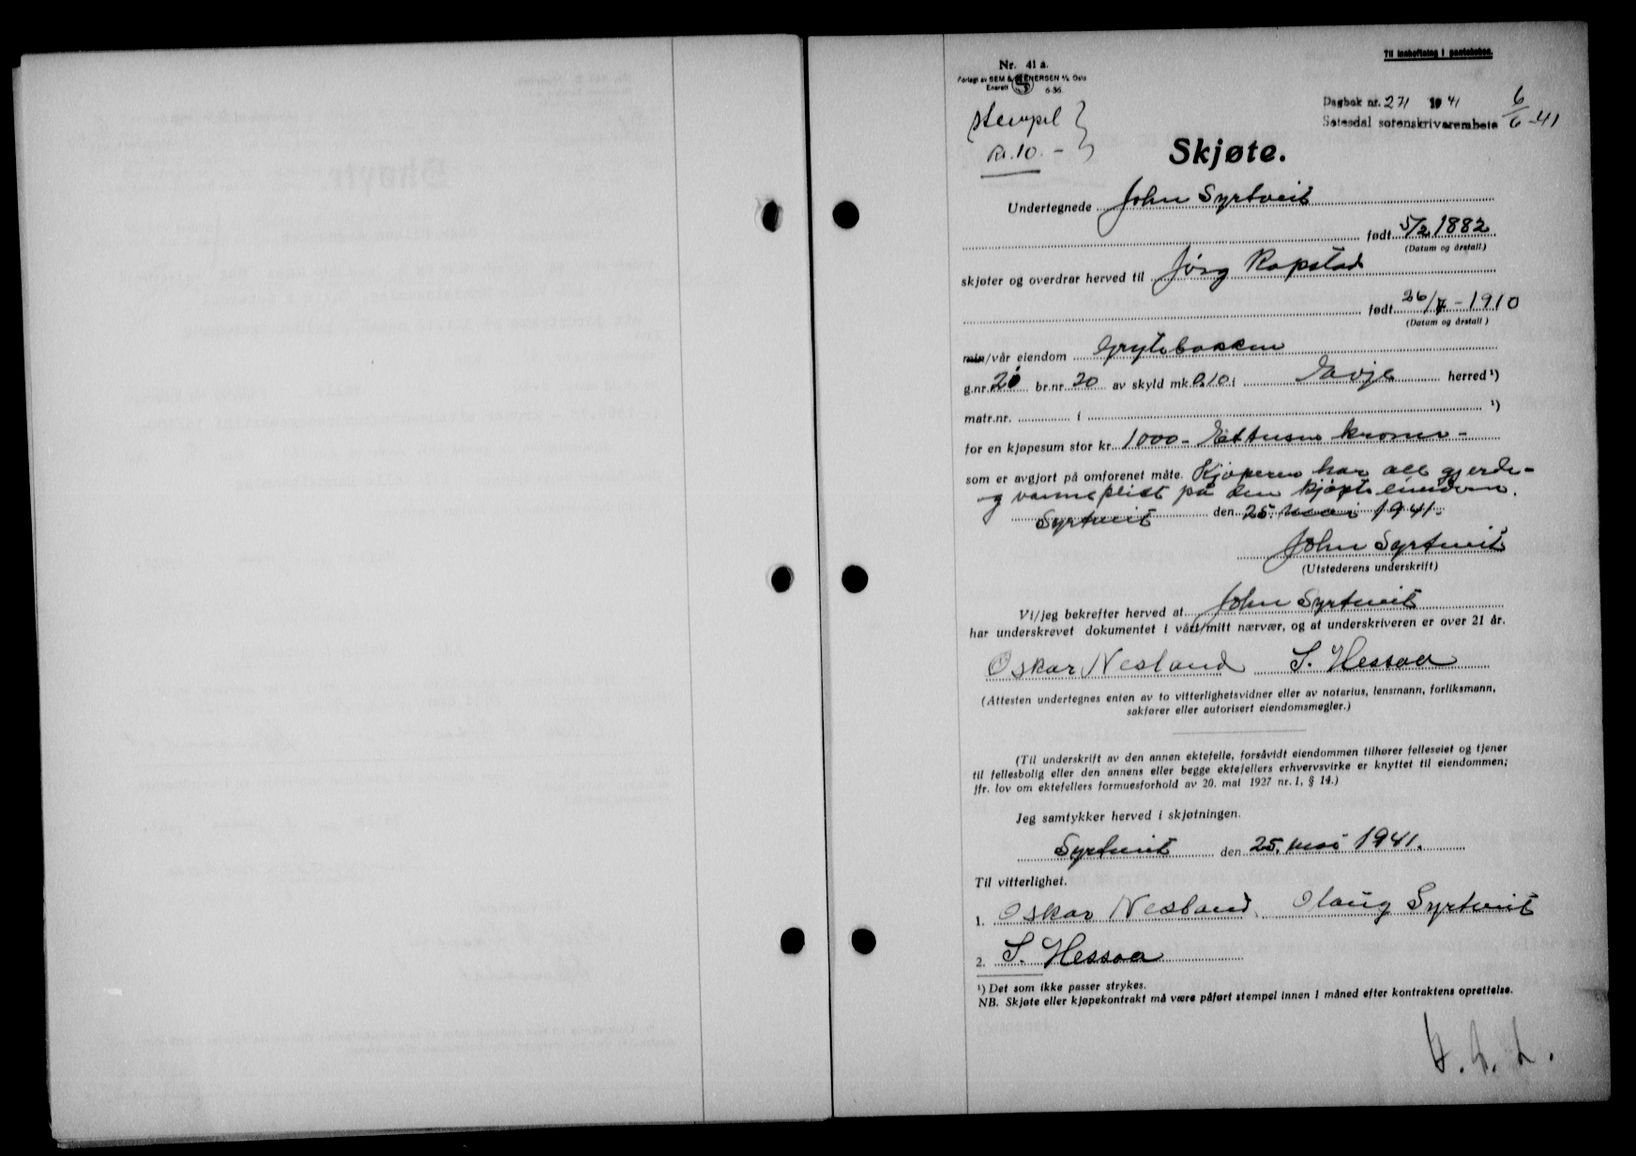 Til innheftning i panteboken.
Nr. 41 a.
Forlagt av SEM & STENERSEN A/S Oslo
Enerett 6-36.
Dagbok nr. 271 1941
Setesdal sorenskriverembete 6/6-41
Stempel
kr. 10.-
Skjøte.
Undertegnede John Syrtveit
født 5/2 1882
(Datum og årstall)
skjøter og overdrar herved til Jörg Ropstad
født 26/7-1910
(Datum og årstall)
min/vår eiendom Grytebakken
g.nr. 20 br.nr. 20 av skyld mk. 0.10 i Evje herred ¹)
matr.nr. i ¹)
for en kjøpesum stor kr. 1000- Ettusen kroner-
som er avgjort på omforenet måte. Kjøperen har all gjerde-
og vanneplikt på den kjøpte eiendom.
Syrtveit den 25. mai 1941.
John Syrtveit
(Utstederens underskrift)
Vi/jeg bekrefter herved at John Syrtveit
har underskrevet dokumentet i vårt/mitt nærvær, og at underskriveren er over 21 år.
Oskar Nesland S. Hessaa
(Attesten undertegnes enten av to vitterlighetsvidner eller av notarius, lensmann, forliksmann,
sakfører eller autorisert eiendomsmegler.)
(Til underskrift av den annen ektefelle, forsåvidt eiendommen tilhører felleseiet og tjener
til fellesbolig eller den annens eller begge ektefellers erhvervsvirke er knyttet til eiendommen;
jfr. lov om ektefellers formuesforhold av 20. mai 1927 nr. 1, § 14.)
Jeg samtykker herved i skjøtningen.
Syrtveit den 25. mai 1941.
Til vitterlighet.
1. Oskar Nesland. Olaug Syrtveit
2. S. Hessaa
¹) Det som ikke passer strykes.
NB. Skjøte eller kjøpekontrakt må være påført stempel innen 1 måned efter kontraktens oprettelse.